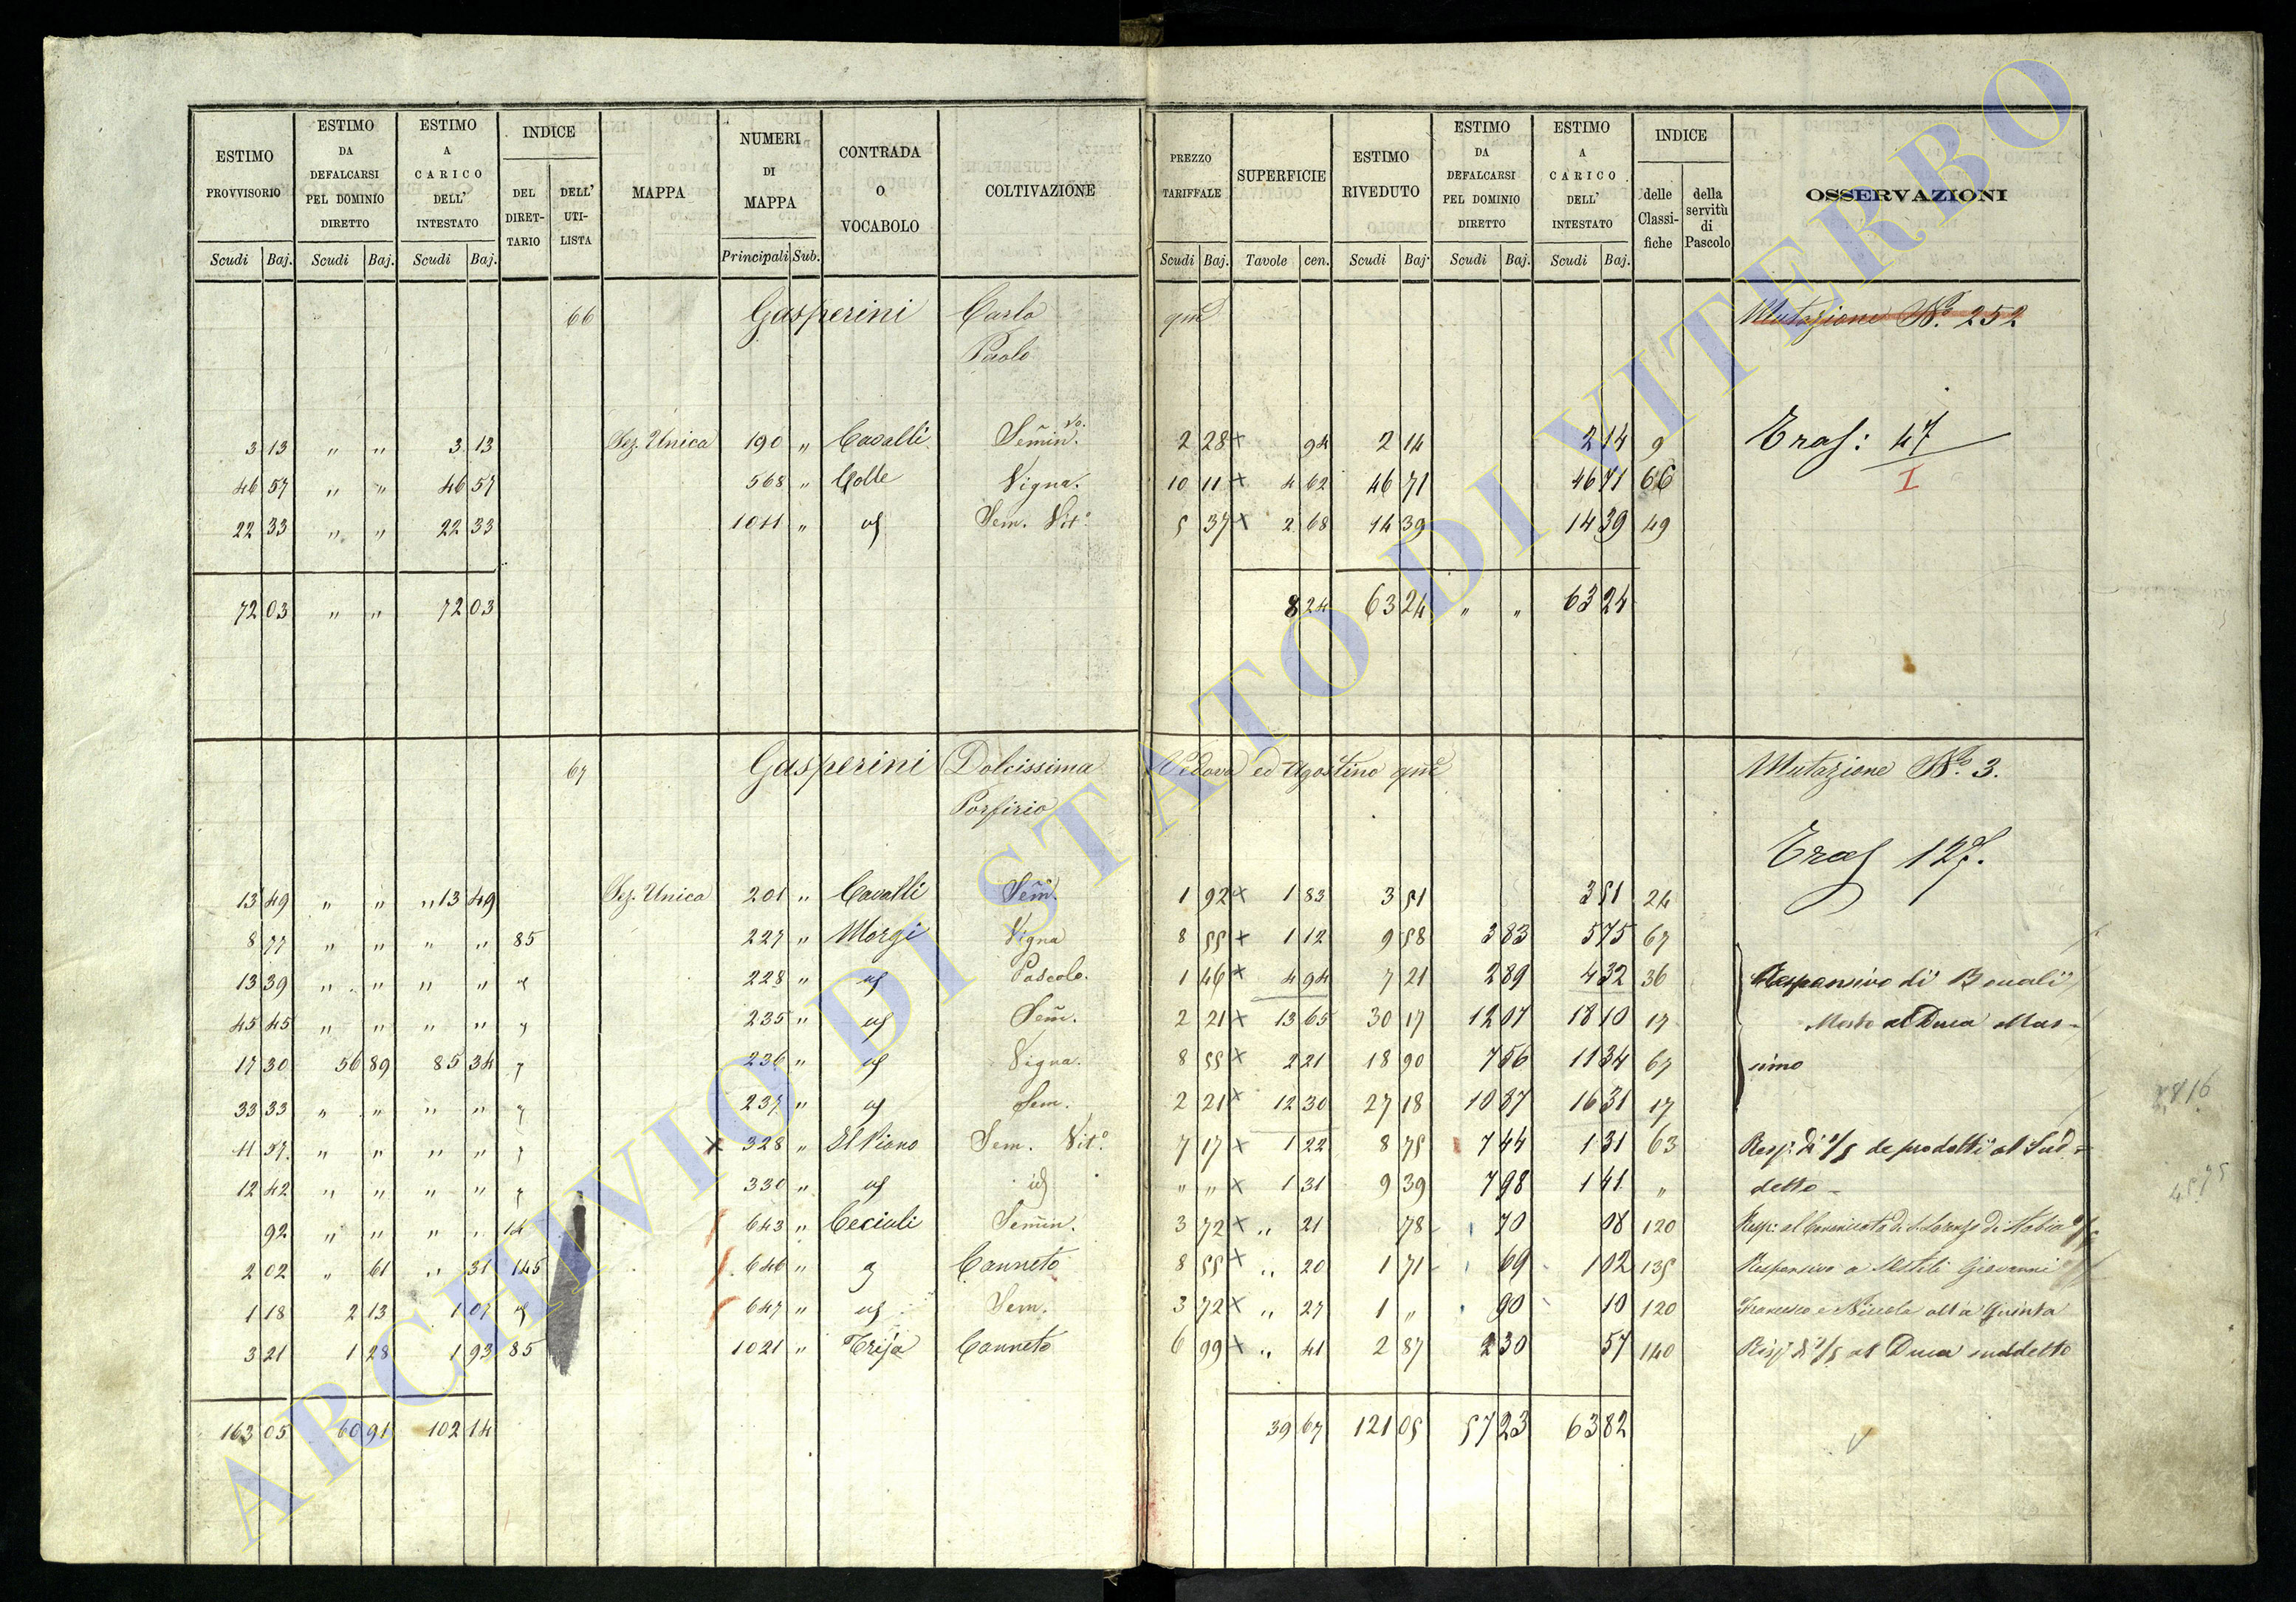 ESTIMO PROVVISORIO Scudi Baj. | ESTIMO DA DEFALCARSI PEL DOMINIO DIRETTO Scudi Baj. | ESTIMO A CARICO DELL' INTESTATO Scudi Baj. | INDICE DEL DIRETTARIO DELL' UTILISTA | MAPPA | NUMERI DI MAPPA Principali Sub. | CONTRADA O VOCABOLO | COLTIVAZIONE | PREZZO TARIFFALE Scudi Baj. | SUPERFICIE Tavole cen. | ESTIMO RIVEDUTO Scudi Baj. | ESTIMO DA DEFALCARSI PEL DOMINIO DIRETTO Scudi Baj. | ESTIMO A CARICO DELL' INTESTATO Scudi Baj. | INDICE delle Classifiche della servitù di Pascolo | OSSERVAZIONI
66 Gasperini Carlo qm Mutazione N.º 252
Paolo
3 13 " " 3 13 Sez. Unica 190 " Cavalli Semin.vo 2 28 x 94 2 14 2 14 9 Tras: 47
46 57 " " 46 57 568 " Colle Vigna. 10 11 x 4 62 46 71 46 71 66 I
22 33 " " 22 33 1011 " id Sem. Vit.º 5 37 x 2 68 14 39 14 39 49
72 03 " " 72 03 8 24 63 24 " " 63 24
67 Gasperini Dolcissima Vedova ed Agostino qm Mutazione N.º 3.
Porfirio
Tras 127.
13 49 " " " 13 49 Sez. Unica 201 " Cavalli Sem. 1 92 x 1 83 3 51 3 51 24
8 77 " " " " 85 227 " Morgi Vigna 8 55 x 1 12 9 58 3 83 5 75 67
13 39 " " " " id 228 " id Pascolo. 1 46 x 4 94 7 21 2 89 4 32 36 Responsivo di
45 45 " " " " 235 " id Sem. 2 21 x 13 65 30 17 12 07 18 10 17 al Duca Mas-
17 30 56 89 85 34 236 " id Vigna. 8 55 x 2 21 18 90 7 56 11 34 67 simo
33 33 " " " " 237 " id Sem. 2 21 x 12 30 27 18 10 87 16 31 17
11 57 " " " " x 328 " Il Piano Sem. Vit.º 7 17 x 1 22 8 75 7 44 1 31 63 Resp: di 1/5 de prodotti al Sud-
12 42 " " " " 330 " id id " " x 1 31 9 39 7 98 1 41 " detto
92 " " " " 14 643 " Ceciuli Semin. 3 72 x " 21 78 70 08 120 Resp: al Canonicato di S. Lorenzo di
2 02 " 61 " 31 145 646 " Canneto 8 55 x " 20 1 71 69 1 02 135 Responsivo a Giovanni
1 18 2 13 1 07 id 647 " id Sem. 3 72 x " 27 1 " 90 10 120 Francesco e Niccola alla Quinta
3 21 1 28 1 93 85 1021 " Trija Canneto 6 99 x " 41 2 87 2 30 57 140 Resp: di 1/5 al Duca suddetto
163 05 60 91 102 14 39 67 121 05 57 23 63 82
ARCHIVIO DI STATO DI VITERBO